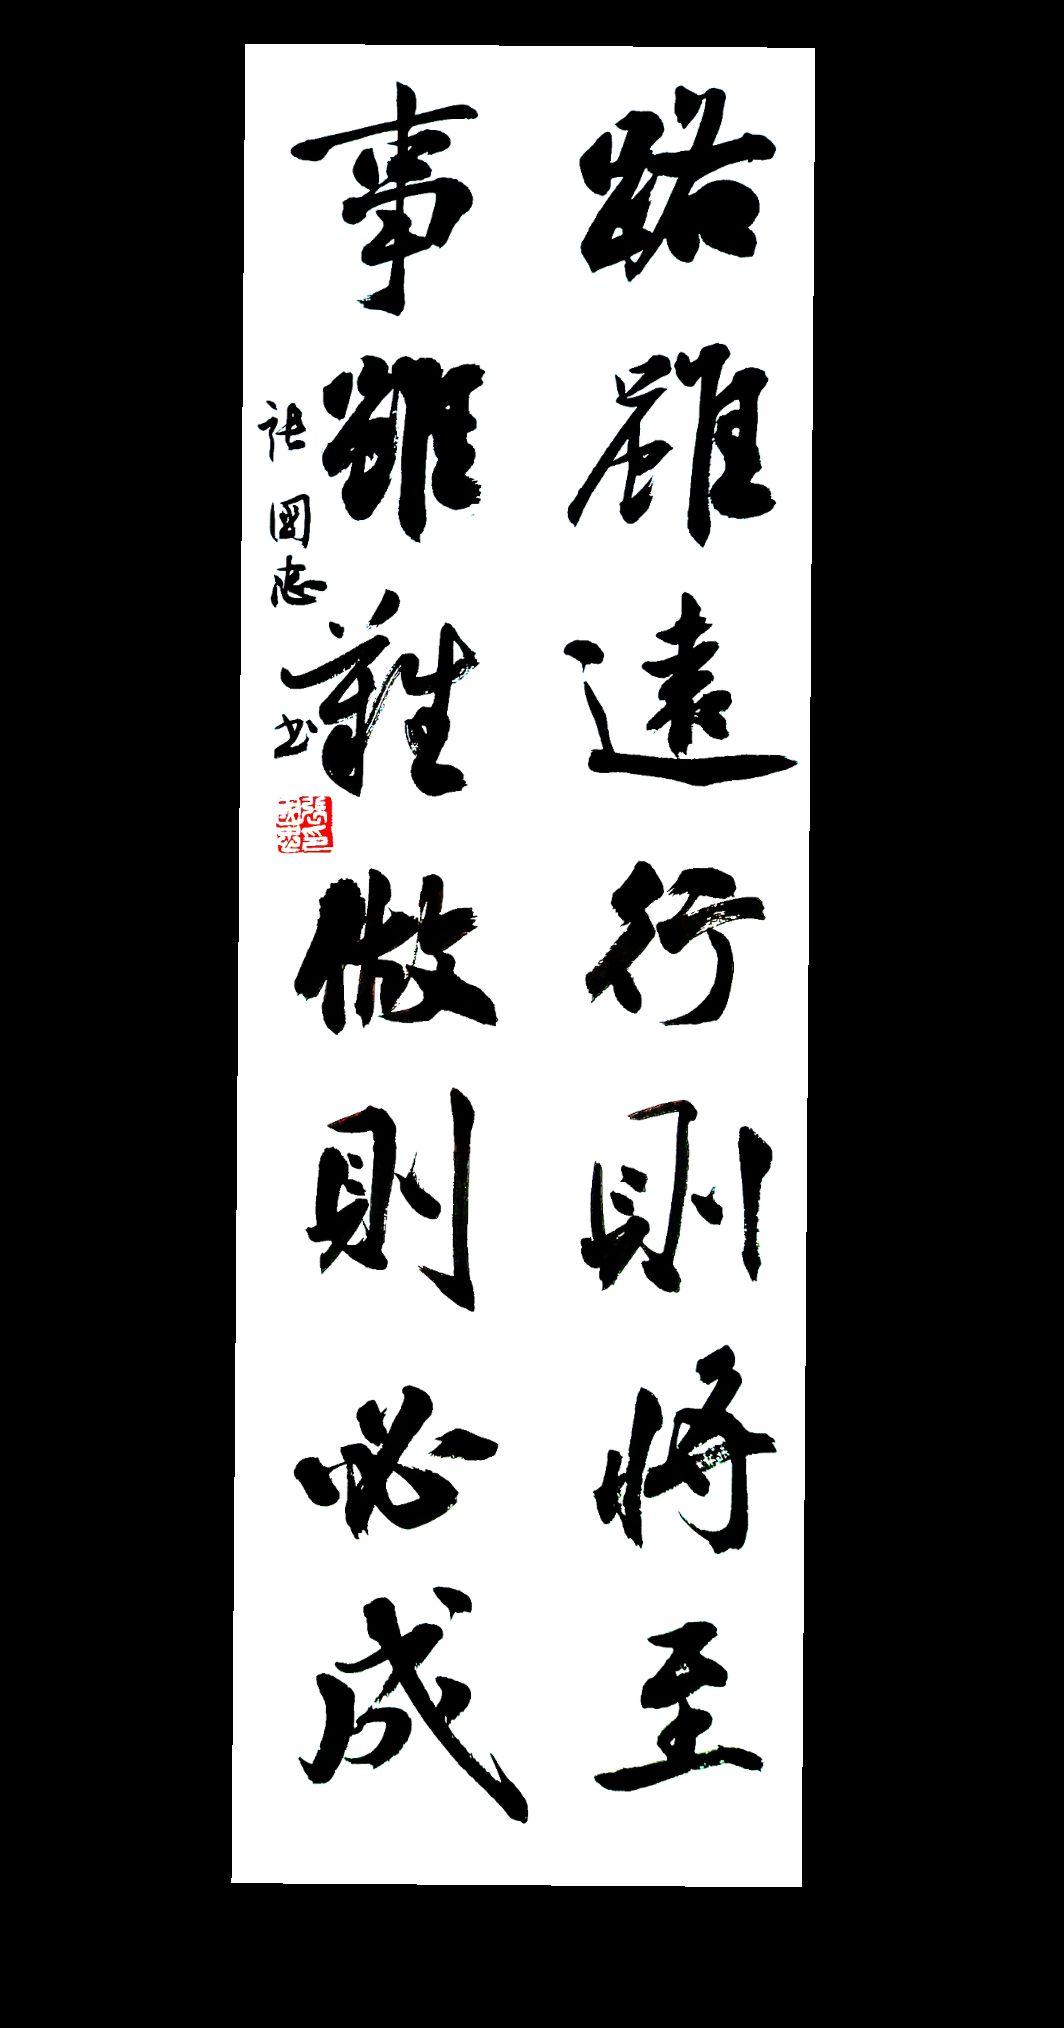 路雖遠行則將至
事雖難做則必成
張國志書